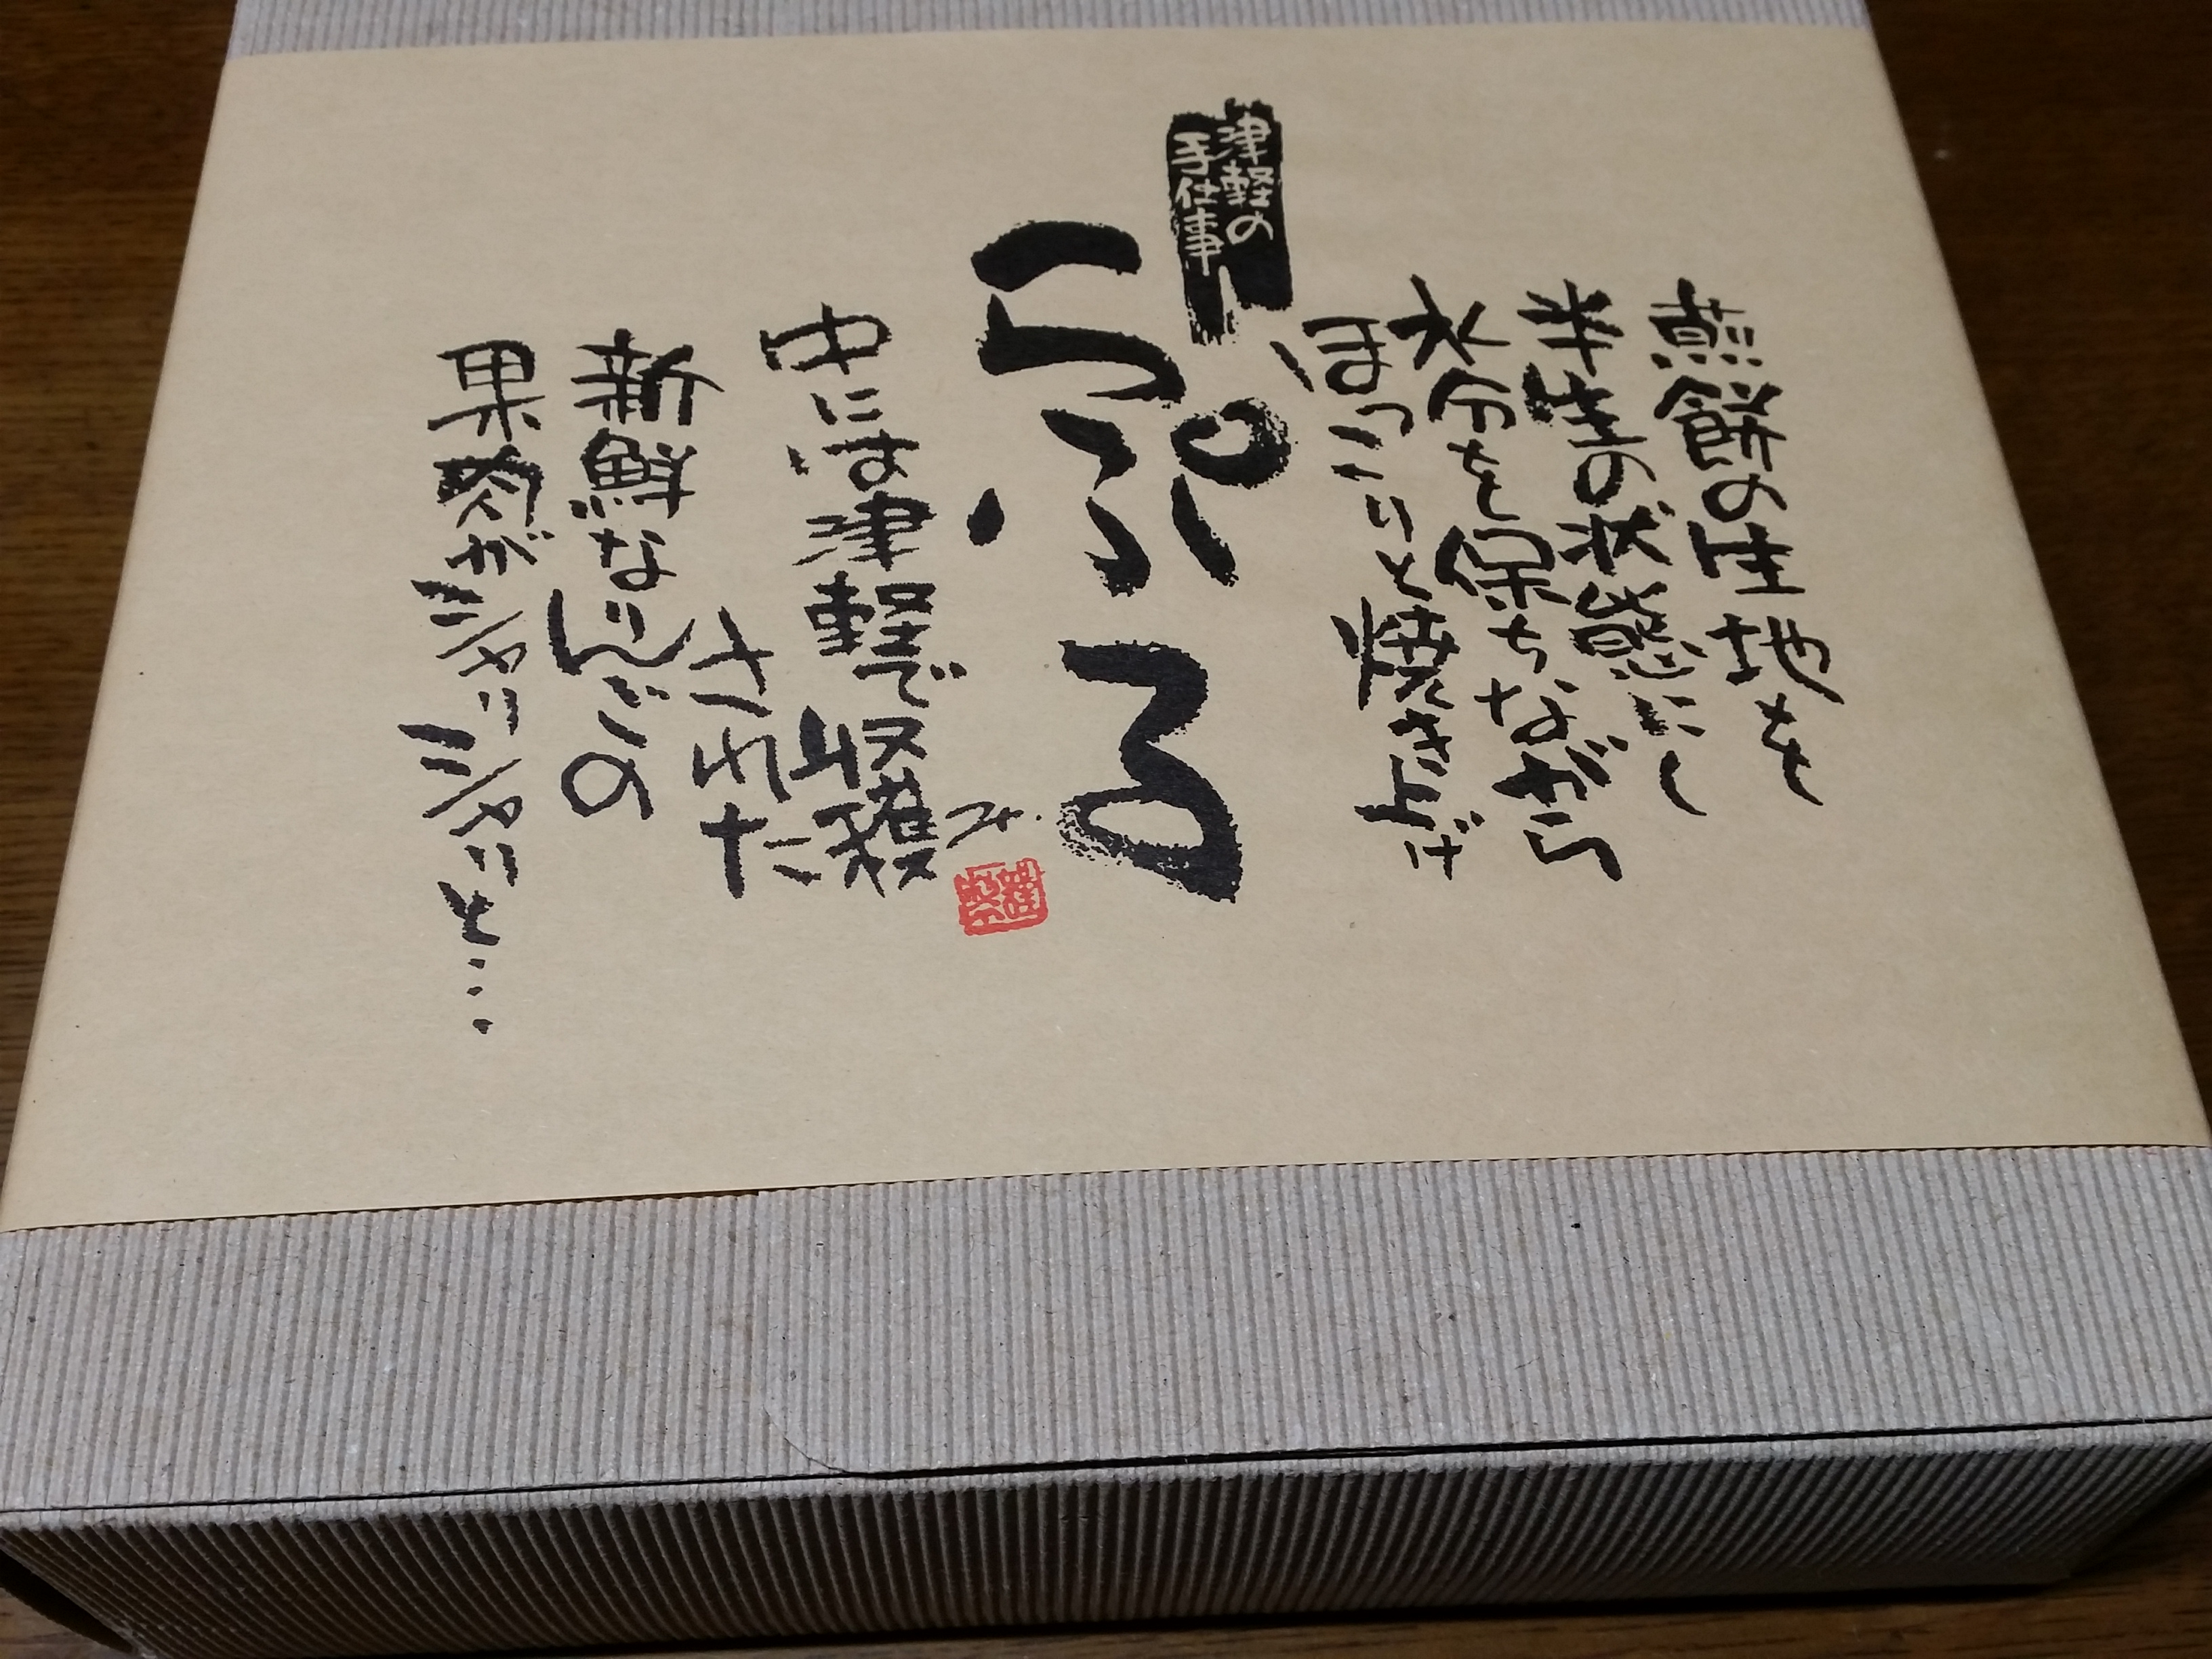 煎餅の生地を
半生の状態にし
水分を保ちながら
ほっこりと焼き上げ、
津軽の
手仕事
らぷる
中には津軽で収穫
された
新鮮なりんごの
果肉がシャリシャリと…